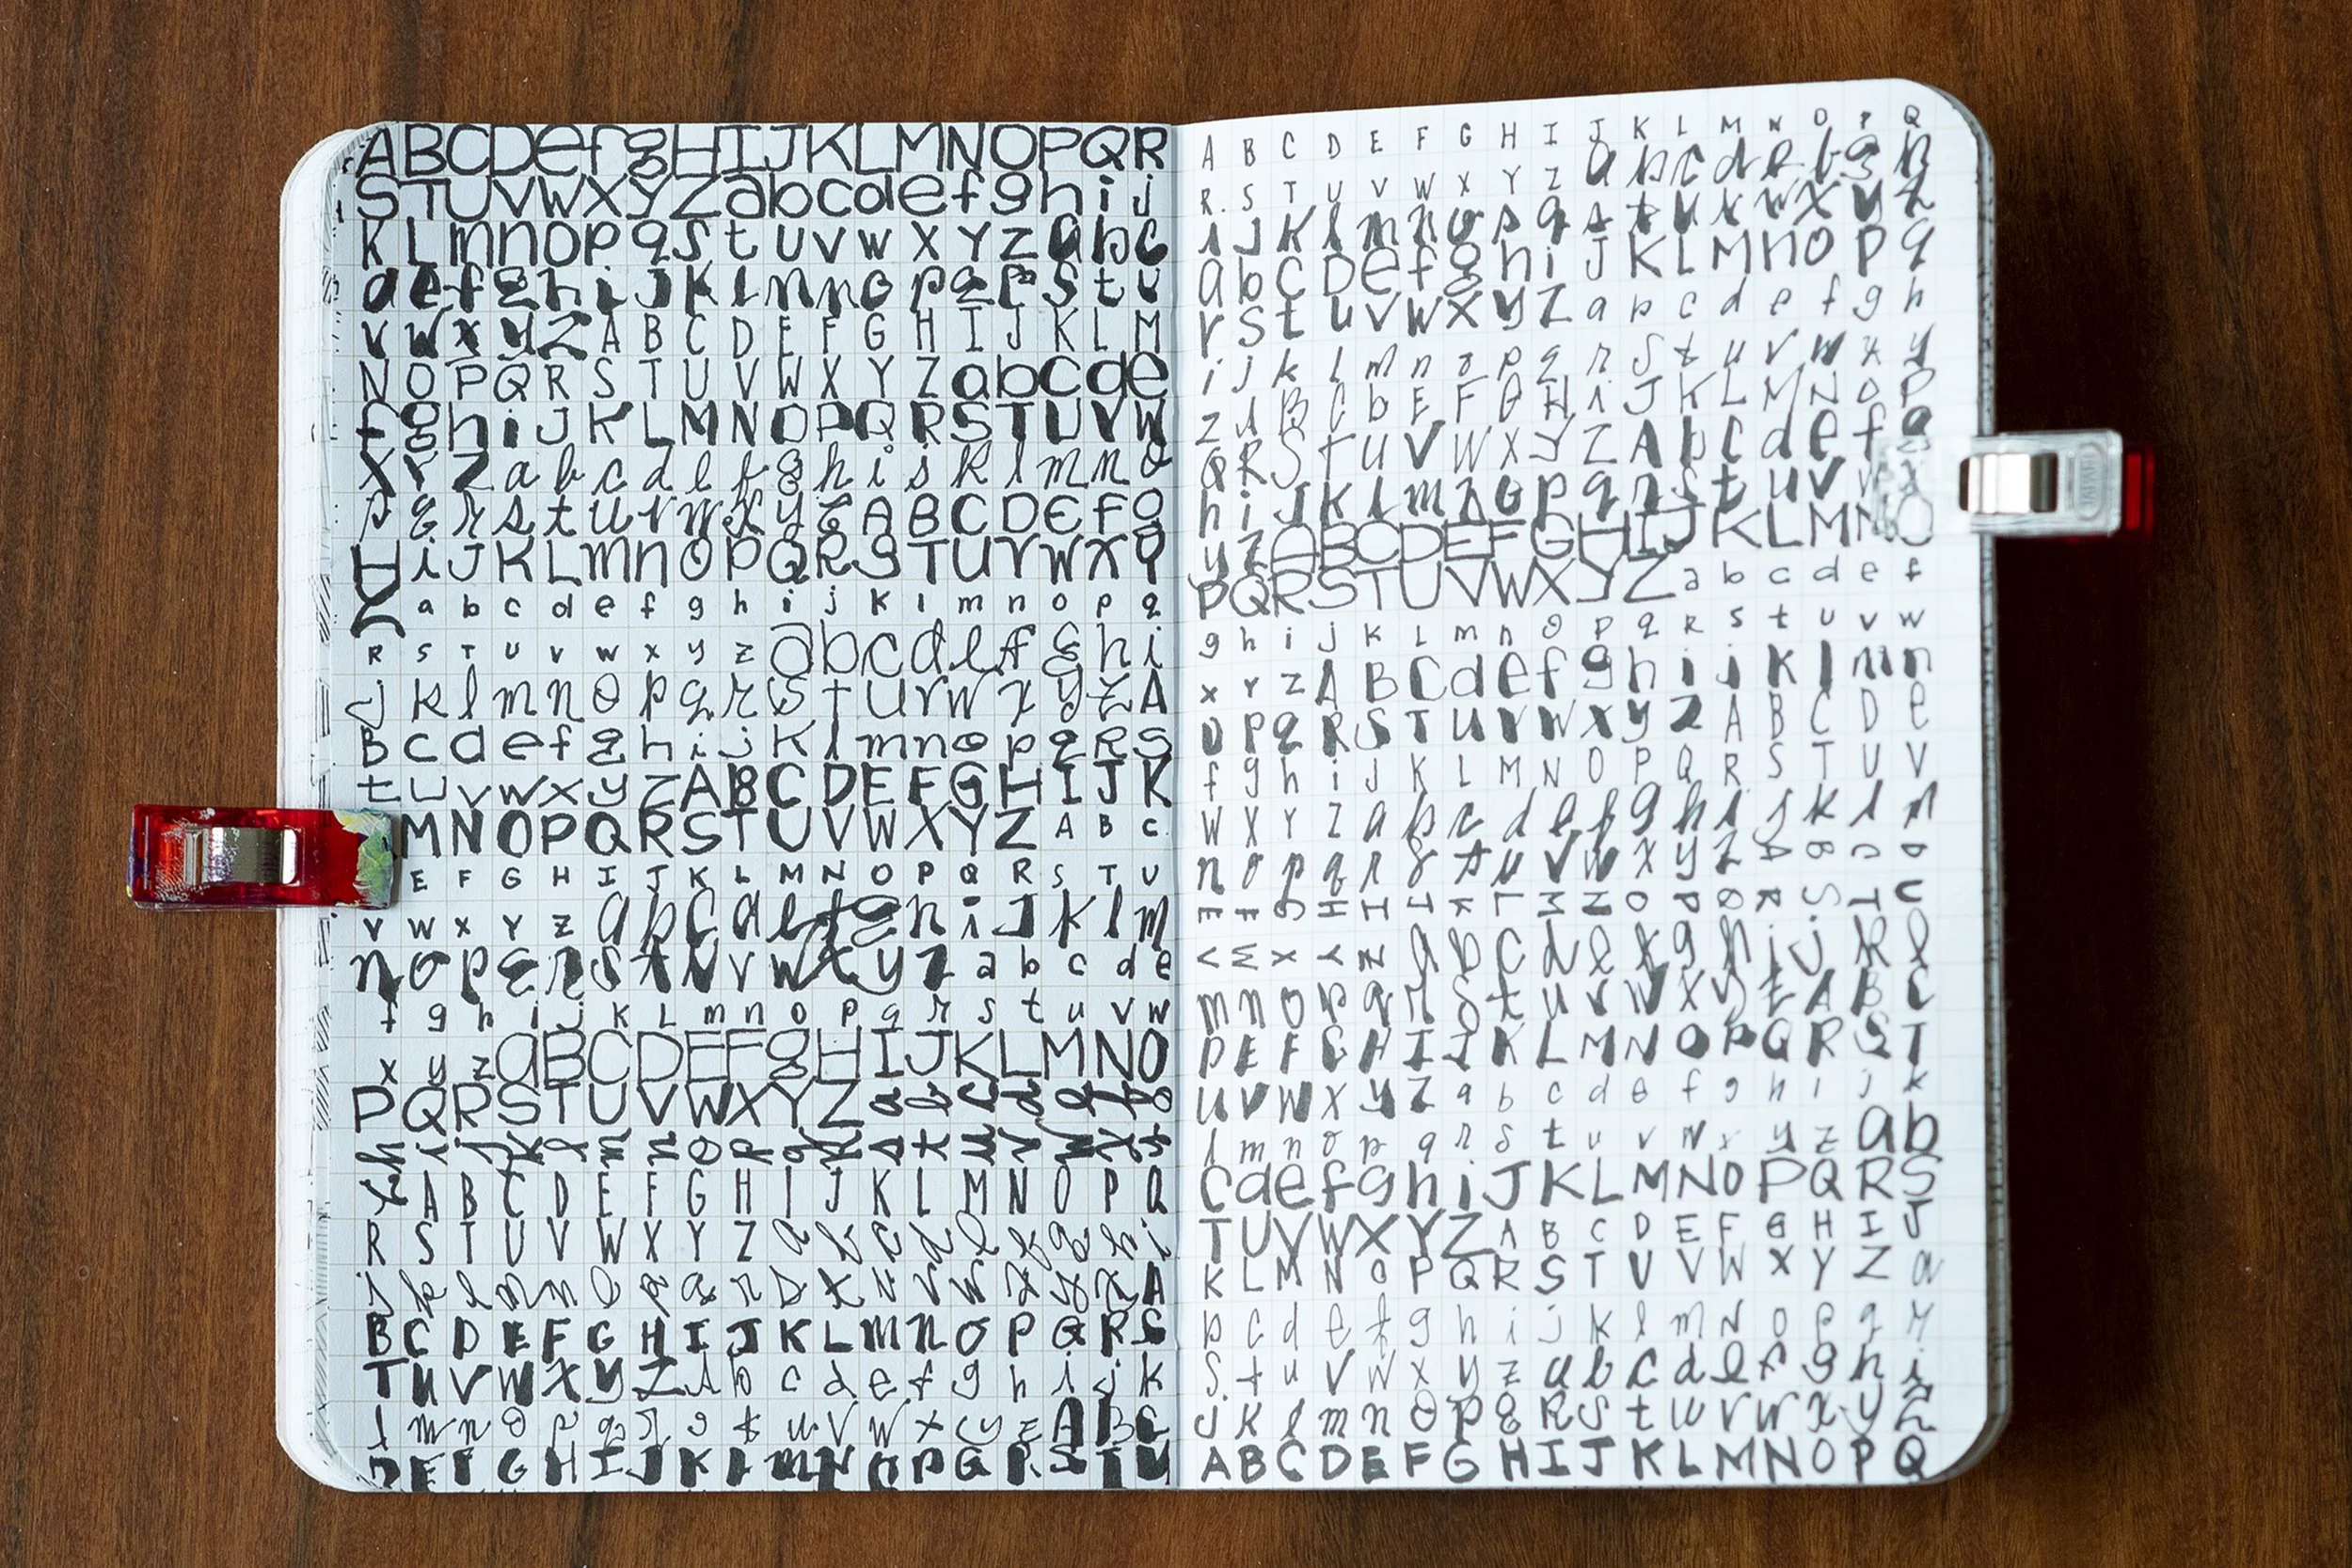 ABCDefgHIJKLMNOPQR
STUVWXYZabcdefghij
KLmnopqstuvwxyzabc
defghiJKlmnopqrstu
vwxyzABCDEFGHIJKLM
NOPQRSTUVWXYZabcde
fghiJKLMNOPQRSTUVW
XYZabcdefghijklmno
pqrstuvwxyzABCDEFG
HiJKLmnopQRSTUVWXY
abcdefghijklmnopq
RSTUVWXYZabcdefghi
jklmnopqrsturwxyzA
BcdefghijKlmnopqRS
tuvwxyZABCDEFGHIJK
MNOPQRSTUVWXYZABC
EFGHIJKLMNOPQRSTU
VWXYZabcdefghiJklm
nopqrstuvwxyzabcde
fghijKLmnopqrstuvw
xyzaBCDEFgHIJKLMNO
PQRSTUVWXYZabcdefg
hijklmnopqrstuvwxy
ABCDEFGHIJKLMNOPQ
RSTUVWXYZabcdefghi
jklmnopqrstuvwxyzA
BCDEFGHIJKLmnoPQRS
TuVWXyZAbcdefghijk
lmnopqrstuvwxyzABC
DEFGHIJKLmNOPQRSTU
ABCDEFGHIJKLMNOPQ
R.STUVWXYZabcdefgh
iJKlmnopqstuxwxyz
abcDefghiJKLMnopq
rStuvwXyZabcdefgh
ijklmnopqrstuvwxy
zABCbEFGHiJKLMNOP
QRStuVWXYZAbCdefg
hiJKlmnopqrstuvwx
yzABCDEFGHIJKLMNO
PQRSTUVWXYZabcdef
ghijKLmnopqRstuvw
xYzABCdefghijklmn
OPqRSTUVWXyzABCDe
fghiJKLMNOPQRSTUV
WXYZabcdefghijklm
nopqrstuvwxyzABCD
EFGHIJKLMNOPQRSTU
VWXYZabcdefghijkl
mnopqrstuvwxyzABC
DEFGHIJKLMNOPQRST
UVWXyZabcdefghijk
lmnopqrstuvwxyzab
CdefghiJKLMNOPQRS
TUVWXYZABCDEFGHIJ
KLMNOPQRSTUVWXYZa
bcdefghijklmNopqr
StuVWxyzabcdefghi
jKlmnopqRstuvwxyz
ABCDEFGHIJKLMNOPQ